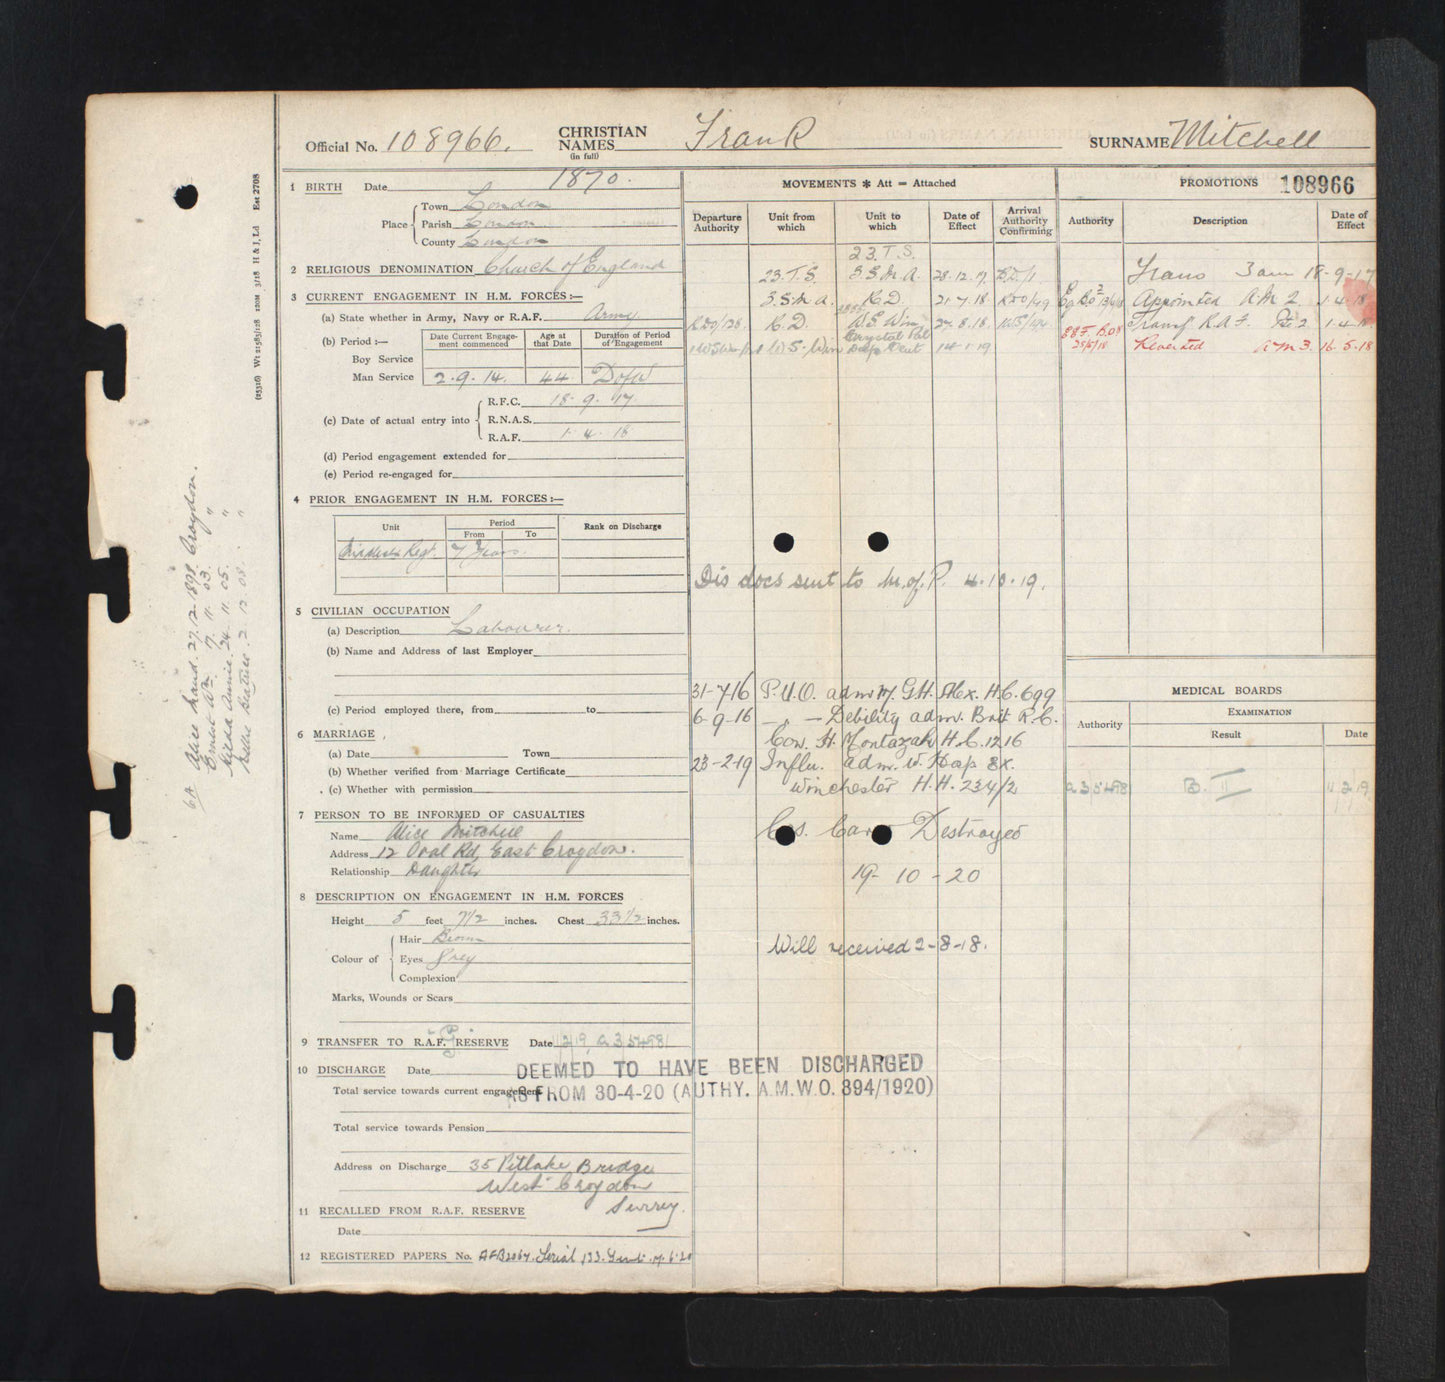 Official No. 108966. CHRISTIAN NAMES (in full) Frank SURNAME Mitchell
1 BIRTH Date 1870.
Place Town London
Parish London
County London
2 RELIGIOUS DENOMINATION Church of England
3 CURRENT ENGAGEMENT IN H.M. FORCES:—
(a) State whether in Army, Navy or R.A.F. Army
(b) Period:— Date Current Engagement commenced Age at that Date Duration of Period of Engagement
Boy Service
Man Service 2.9.14. 44 DofW
(c) Date of actual entry into R.F.C. 18.9.17.
R.N.A.S.
R.A.F. 1.4.18
(d) Period engagement extended for
(e) Period re-engaged for
4 PRIOR ENGAGEMENT IN H.M. FORCES:—
Unit Period From To Rank on Discharge
Regt. 7 Years.
5 CIVILIAN OCCUPATION
(a) Description Labourer.
(b) Name and Address of last Employer
(c) Period employed there, from to
6 MARRIAGE
(a) Date Town
(b) Whether verified from Marriage Certificate
(c) Whether with permission
7 PERSON TO BE INFORMED OF CASUALTIES
Name Alice Mitchell
Address 12 Oval Rd, East Croydon.
Relationship Daughter
8 DESCRIPTION ON ENGAGEMENT IN H.M. FORCES
Height 5 feet 7½ inches. Chest 33½ inches.
Colour of Hair Brown
Eyes Grey
Complexion
Marks, Wounds or Scars
9 TRANSFER TO R.A.F. "G" RESERVE Date
10 DISCHARGE Date DEEMED TO HAVE BEEN DISCHARGED
Total service towards current engagement AS FROM 30-4-20 (AUTHY. A.M.W.O. 894/1920)
Total service towards Pension
Address on Discharge 35 Pitlake Bridge
West Croydon
Surrey.
11 RECALLED FROM R.A.F. RESERVE
Date
12 REGISTERED PAPERS No. AFB2067. Serial 133.
MOVEMENTS * Att = Attached
Departure Authority Unit from which Unit to which Date of Effect Arrival Authority Confirming
23.T.S.
23.T.S. 3.S.M.A. 28.12.17
3.S.M.A. K.D. 21.7.18. RDO/49
RDO/128. K.D. W.S. Win 27.8.18.
W.S. Win Crystal Pal Disp Cent 14.1.19
Dis docs sent to M.of.P. 4.10.19.
31-7-16 P.U.O. adm. 17. G.H. Alex. H.C. 699
6-9-16 — " — Debility adm. Brit R.C.
Con. H. Montazah H.C. 1216
23-2-19 Influ. adm. W. Hosp Ex.
Winchester H.H. 234/2
Cas. Card Destroyed
19-10-20
Will received 2-8-18.
PROMOTIONS 108966
Authority Description Date of Effect
Trans 3am 18-9-17
Appointed AM 2 1.4.18
Transf. R.A.F. Pte 2 1.4.18
Reverted AM3. 16.5.18
MEDICAL BOARDS
Authority EXAMINATION
Result Date
a354898 B. II 11 2 19
6A Alice Maud. 27.12.1898 Croydon.
Ernest Wm. 17. 11. 03. "
Annie. 24. 11. 05. "
Nellie Beatrice. 2. 12. 08. "
(25326) Wt 21583/128 120M 3/18 H & J, Ld Est 2708